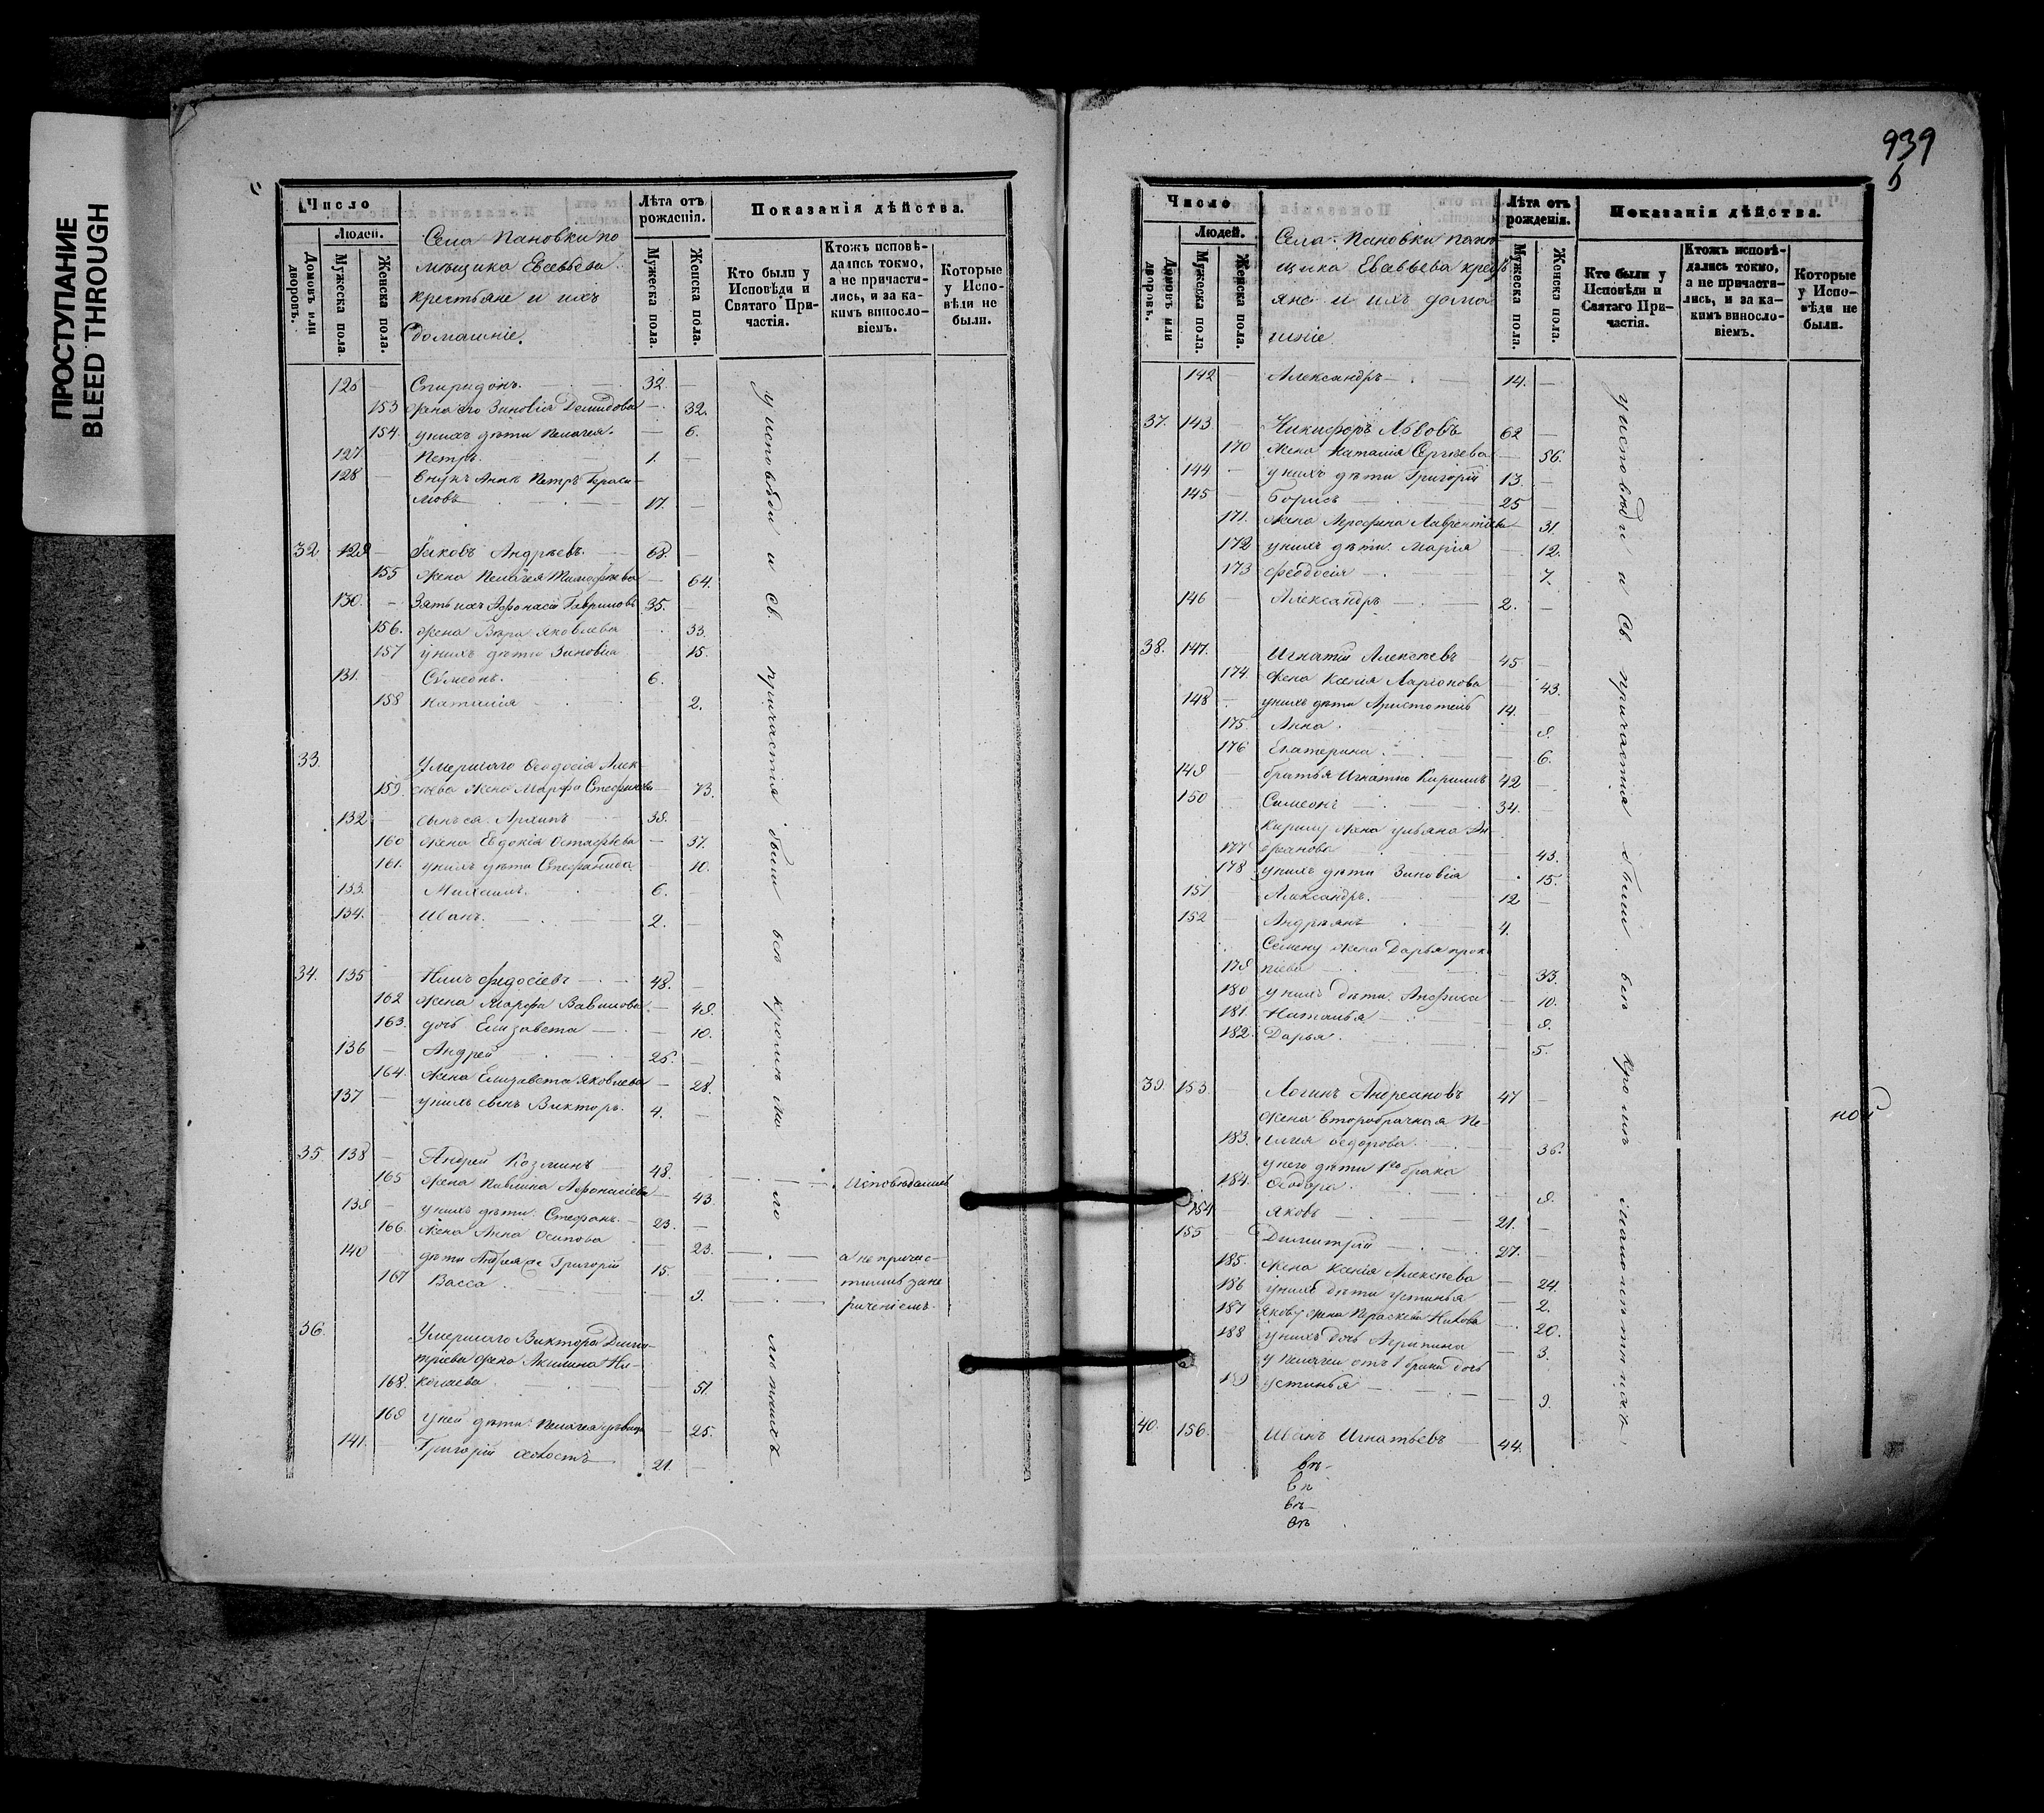 ПРОСТУПАНИЕ
BLEED THROUGH
Число
Людей.
Домовъ или дворовъ.
Мужеска пола.
Женска пола.
Села Пановки по
мѣщика Евсевьева
крестьяне и ихъ
домашніе.
Лѣта отъ рожденія.
Мужеска пола.
Женска пола.
Показанія дѣйства.
Кто были у Исповѣди и Святаго Причастія.
Ктожъ исповѣдались токмо, а не причастились, и за какимъ винословіемъ.
Которые у Исповѣди не были.
126 — Спиридонъ. — 32 —
153 жена его Зиновія Демидова — 32.
154. у нихъ дѣти Пелагея. — 6.
127. Петръ. 1. —
128 — внукъ Петръ Гераси-
мовъ 17. —
32 129 — Іаковъ Андреевъ. — 68. —
155 жена Пелагея Тимофеева — 64.
130. — Зять ихъ Афонасій Гавриловъ 35. —
156. жена Вѣра Яковлева — 33.
157 у нихъ дѣти Зиновія 15.
131. Сѵмеонъ. 6.
158 Наталія 2.
33. Умершаго Ѳеодосія Алек-
159. сѣева жена Марфа Стефанова — 73.
132 — сынъ ея Архипъ 38. —
160 жена Евдокія Остафьева — 37.
161. у нихъ дѣти Стефанида 10.
133. Михаилъ. 6. —
134. Иванъ. 2. —
34. 135 Нилъ Федосіевъ — 48. —
162 жена Марфа Вавилова — 49.
163. дочь Елизавета — 10.
136 — Андрей 26. —
164. жена Елизавета Яковлева — 28.
137 — у нихъ сынъ Викторъ. 4. —
35. 138 — Андрей Козминъ 48. исповѣдались
165 жена Павлина Афонасіева — 43.
139 — у нихъ дѣти Стефанъ. 23. —
166. жена Анна Осипова 23. а не причас-
140 — дѣти Андрея Григорій 15. — тились за не
167 Васса 9. реченіемъ.
36. Умершаго Виктора Дими-
тріева жена Акилина Ни-
168. колаева 51.
169 у ней дѣти: Пелагея дѣвица — 25.
141. Григорій холостъ 21. —
у исповѣди и св. причастія были всѣ кромѣ мало лѣтнихъ
939
Число
Людей.
Домовъ или дворовъ.
Мужеска пола.
Женска пола.
Села Пановки помѣ
щика Евсевьева кресть
яне и ихъ дома
шніе
Лѣта отъ рожденія.
Мужеска пола.
Женска пола.
Показанія дѣйства.
Кто были у Исповѣди и Святаго Причастія.
Ктожъ исповѣдались токмо, а не причастились, и за какимъ винословіемъ.
Которые у Исповѣди не были.
142 — Александръ — 14. —
37. 143 — Никифоръ Львовъ 62 —
170 жена Наталія Сергѣева 56.
144 — у нихъ дѣти Григорій 13. —
145 Борисъ 25 —
171. жена Агрофена Лаврентіева 31.
172 у нихъ дѣти Марія — 12.
173 Феодосія — 7.
146 Александръ — 2. —
38. 147. Игнатій Алексѣевъ 45 —
174. жена Ксенія Ларіонова — 43.
148 — у нихъ дѣти Аристотель 14.
175. Анна. 9.
176 Екатерина. 6.
149 братья Игнатію Кирилъ 42 —
150 Симеонъ 34.
Кирилу жена Ульяна Ан-
177 дреанова 43.
178 у нихъ дѣти Зиновія 15.
151 Александръ. 12 —
152 Андреянъ 4.
Семену жена Дарья Проко
179 піева — 33.
180 у нихъ дѣти Анфиса — 10.
181. Наталья — 9.
182. Дарья. 5.
39. 153. Логинъ Андреановъ 47 —
жена второбрачная Пе-
183. лагея Ѳедорова. 36.
у него дѣти 1го брака
184. Ѳеодора. 9.
154 Яковъ — 21. —
155 — Димитрій — 27. —
185. жена Ксенія Алексѣева — 24.
186 у нихъ дѣти Устинья — 2.
187 Якову жена Параскева Никова — 20.
188 у нихъ дочь Агрипина — 3.
у Пелагеи отъ 1 брака дочь
189 Устинья — 9.
40. 156. Иванъ Игнатьевъ — 44.
у исповѣди и св причастія были всѣ кромѣ малолѣтнихъ